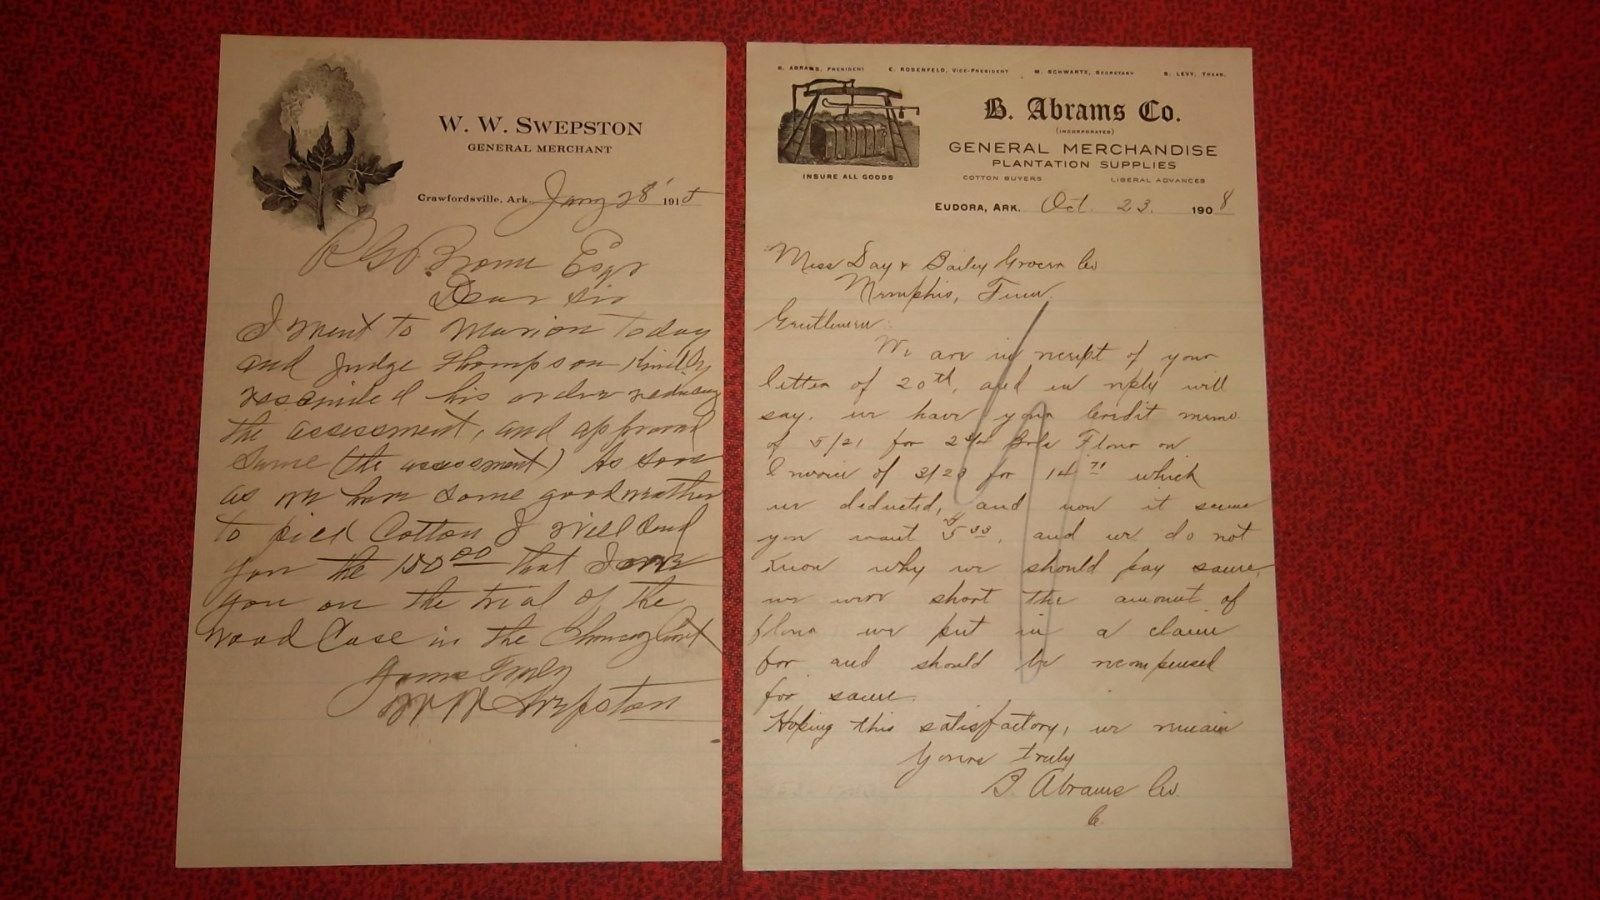 W. W. SWEPSTON
GENERAL MERCHANT
Crawfordsville, Ark., Jany 28' 1915
R G Brown Esqr
Dear Sir
I went to Marion Today
and Judge Thompson Kindly
rescinded his order reducing
the assessment, and approved
same (the assessment) As soon
as we have some good weather
to pick Cotton I will send
you the 150 00 that I owe
you on the trial of the
Wood Case in the Chancery Court
Yours Truly
W W Swepston
B. ABRAMS, PRESIDENT E. ROSENFELD, VICE-PRESIDENT M. SCHWARTZ, SECRETARY S. LEVY, TREAS.
B. Abrams Co.
(INCORPORATED)
GENERAL MERCHANDISE
PLANTATION SUPPLIES
INSURE ALL GOODS
COTTON BUYERS LIBERAL ADVANCES
EUDORA, ARK. Oct. 23. 1908
Day & Bailey Grocer Co
Memphis, Tenn.
Gentlemen:
We are in receipt of your
letter of 20th, and in reply will
say, we have your Credit memo.
of 5/21 for 2 3/4 Bbls Flour on
Invoice of 3/23 for 14 71 which
we deducted, and now it seems
you want 5 33, and we do not
know why we should pay same,
we were short the amount of
flour we put in a claim
for and should be recompensed
for same.
Hoping this satisfactory, we remain
Yours truly
B Abrams Co.